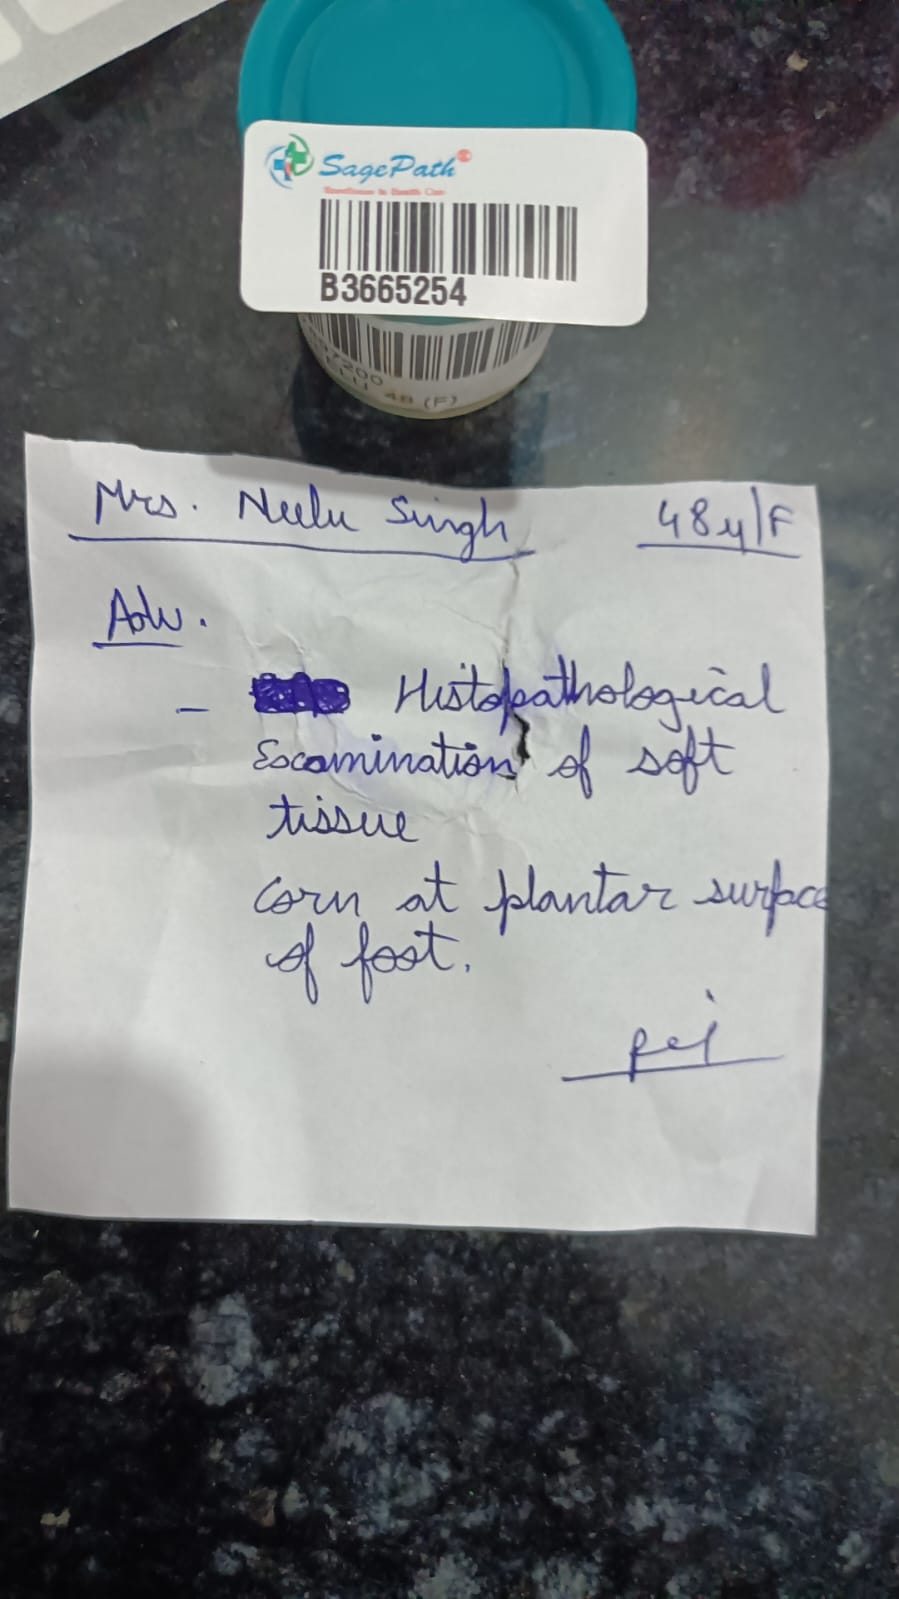 SagePath
B3665254
48 (F)
Mrs. Neelu Singh 48y/F
Adv.
- Histopathological
Examination of soft
tissue
corn at plantar surface
of foot.